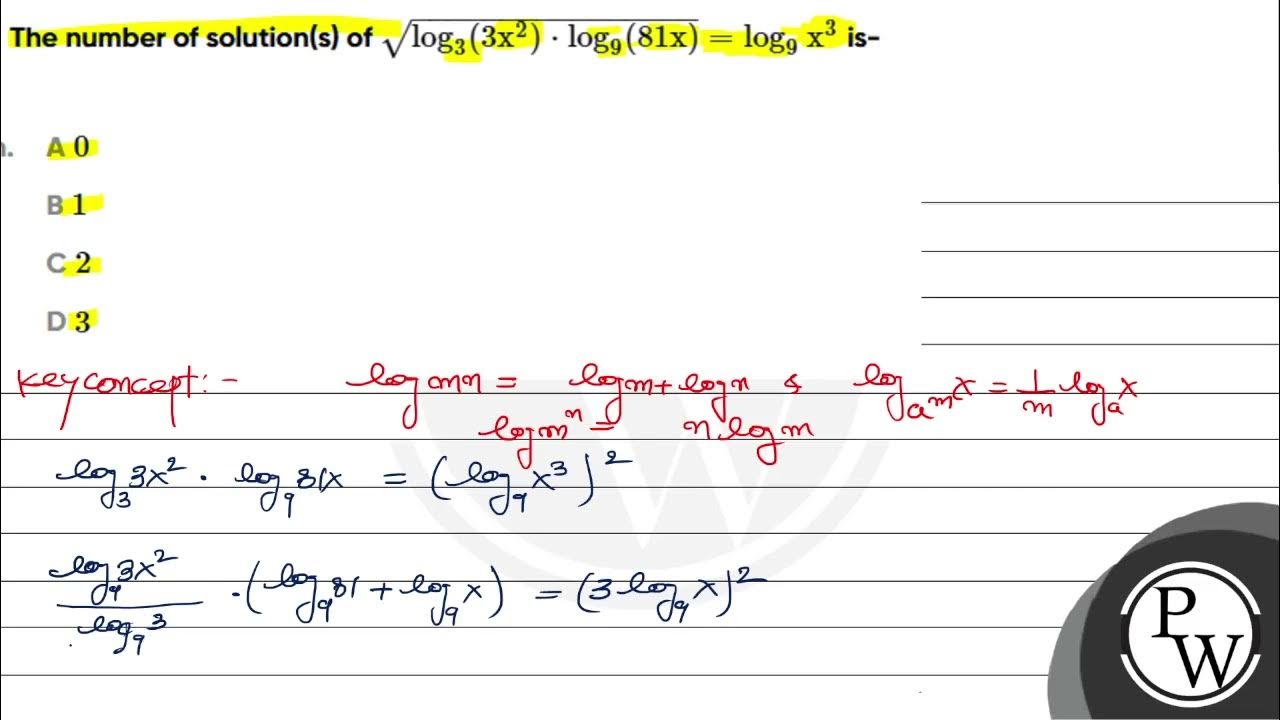 The number of solution(s) of √log₃(3x²) · log₉(81x) = log₉ x³ is-
n. A 0
B 1
C 2
D 3
Key concept :- log mn = log m + log n & log_{a^m} x = 1/m log_a x
log mⁿ = n log m
log₃ 3x² · log₉ 81x = (log₉ x³)²
log₉ 3x² / log₉ 3 · (log₉ 81 + log₉ x) = (3 log₉ x)²
P
W